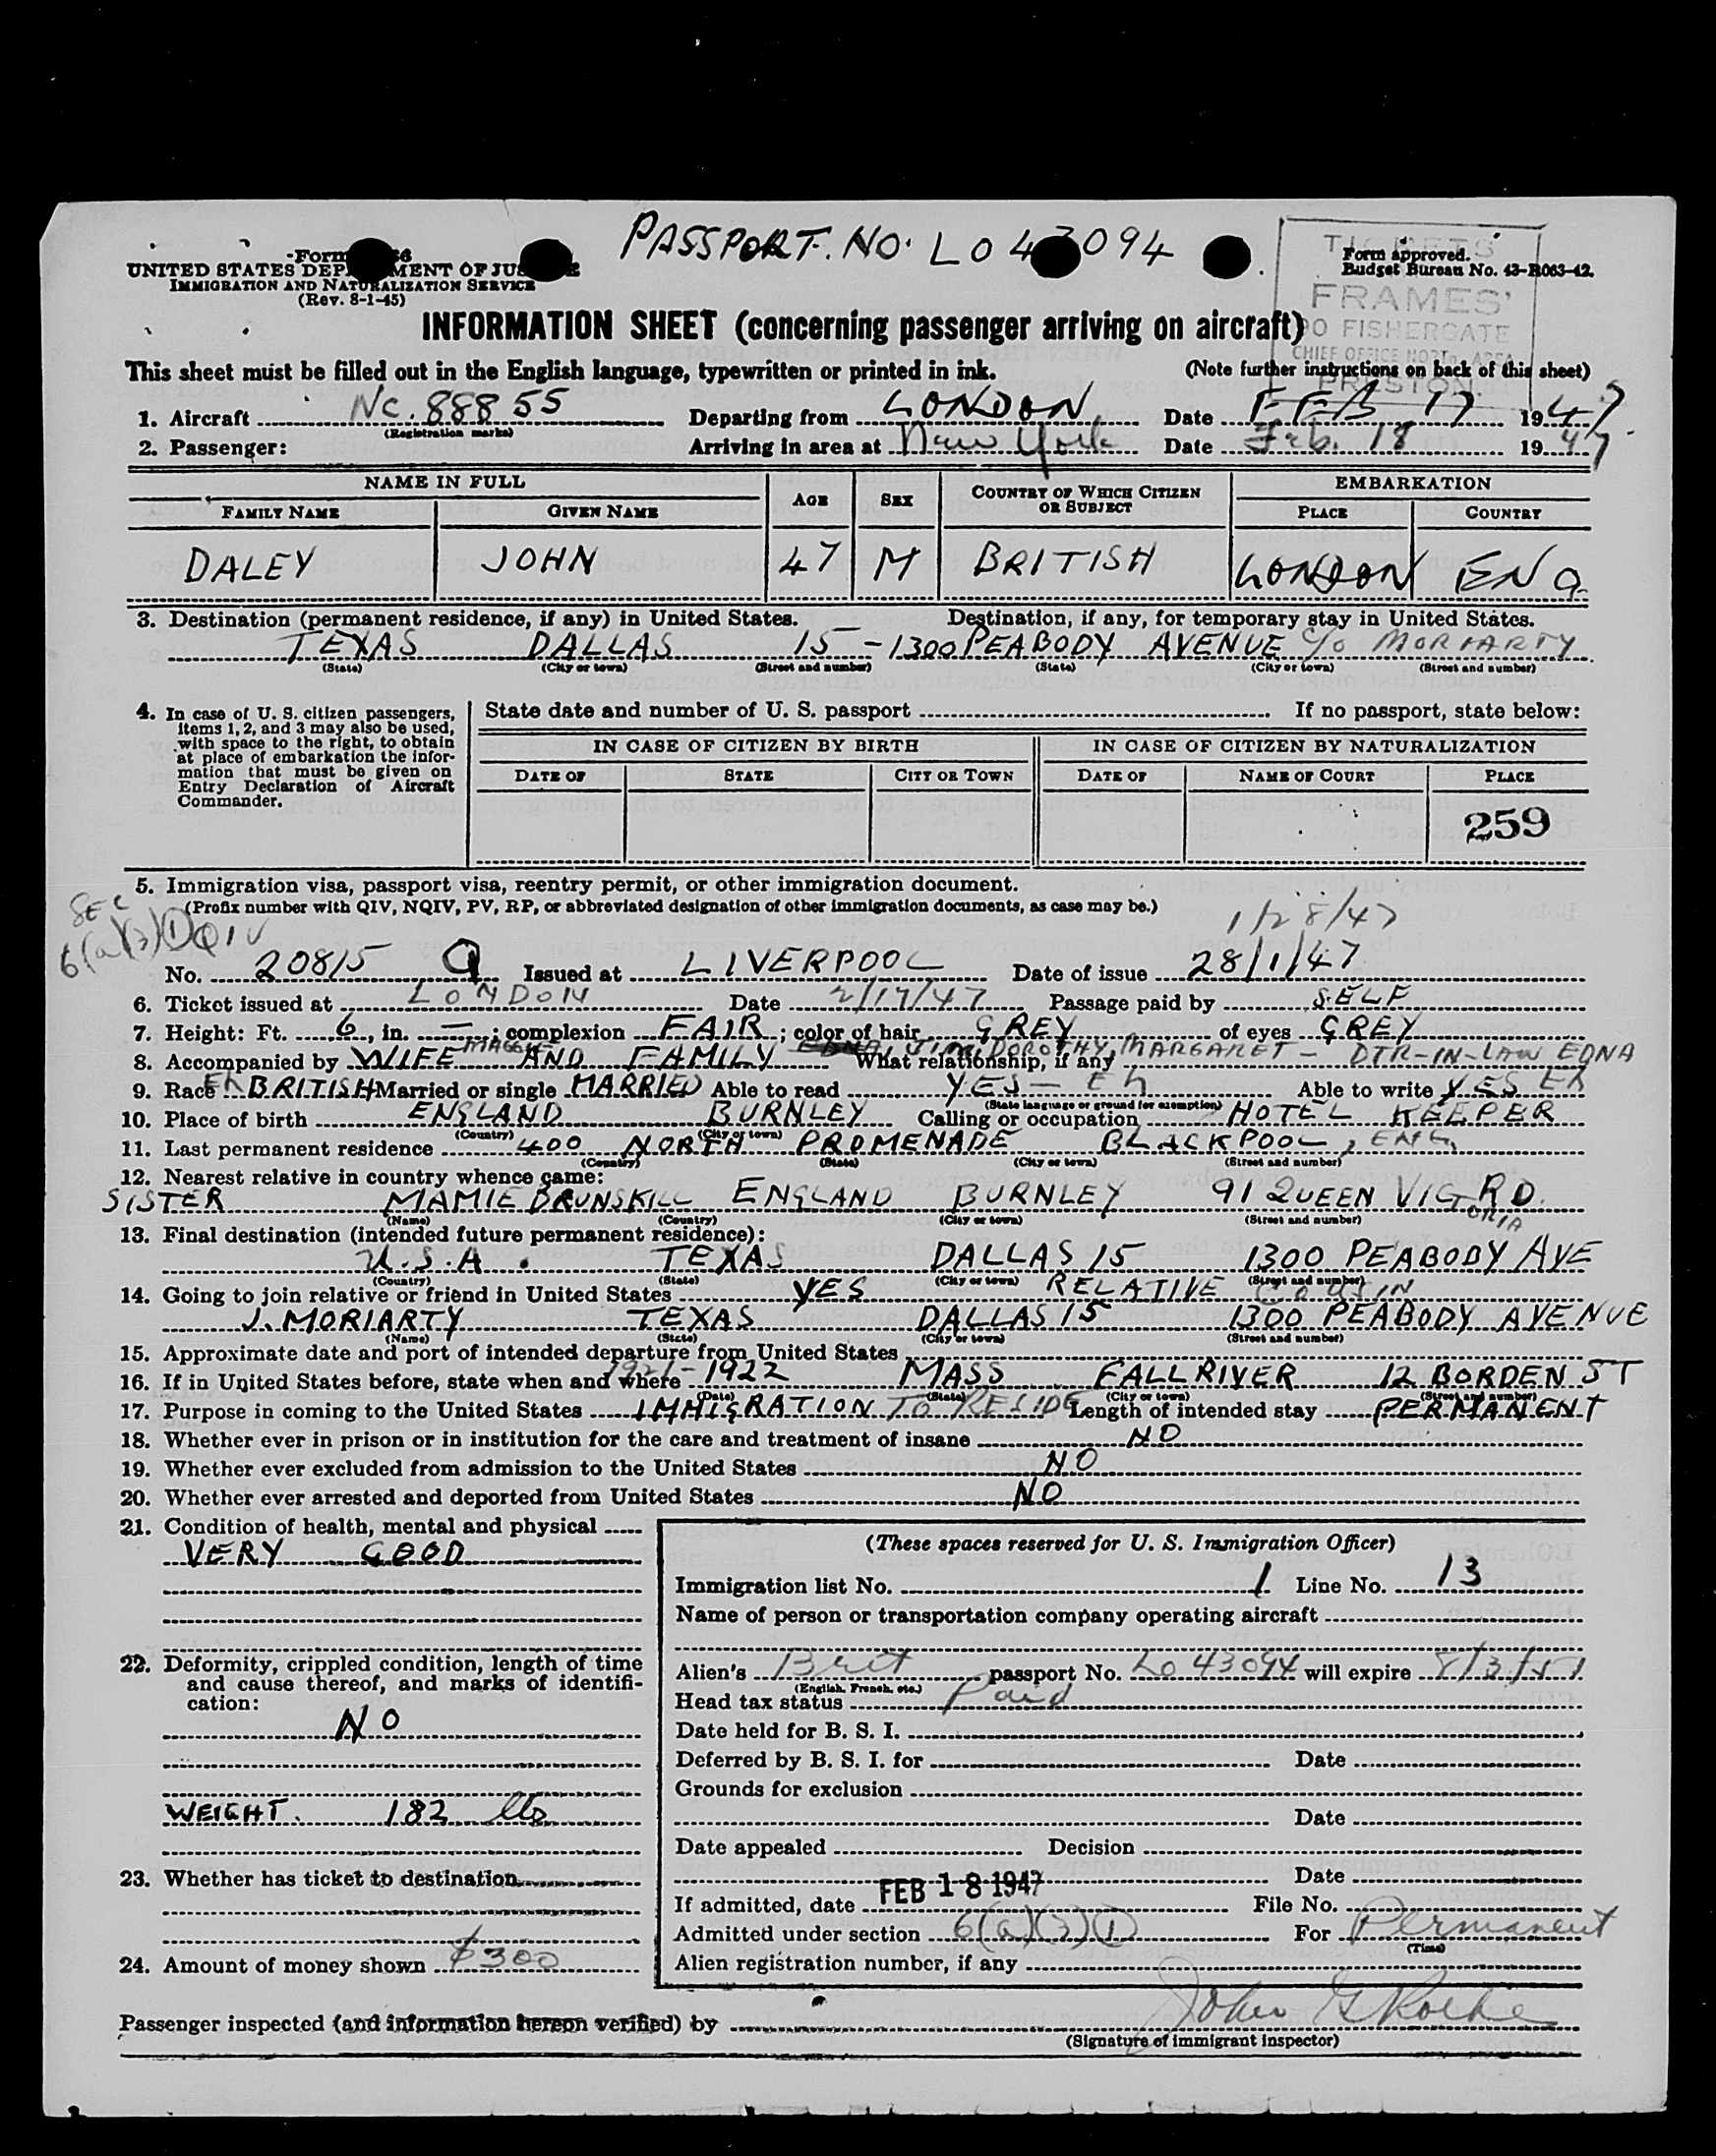 PASSPORT. NO. LO 43094
Form 66
UNITED STATES DEPARTMENT OF JUSTICE
IMMIGRATION AND NATURALIZATION SERVICE
(Rev. 8-1-45)
TICKETS
Form approved.
Budget Bureau No. 43-R063-42.
FRAMES'
FISHERGATE
CHIEF OFFICE NORTH AREA
PRESTON
INFORMATION SHEET (concerning passenger arriving on aircraft)
This sheet must be filled out in the English language, typewritten or printed in ink. (Note further instructions on back of this sheet)
1. Aircraft NC. 88855 Departing from LONDON Date FEB 17 1947
(Registration marks)
2. Passenger: Arriving in area at New York Date Feb. 18 1947
NAME IN FULL AGE SEX COUNTRY OF WHICH CITIZEN OR SUBJECT EMBARKATION
FAMILY NAME GIVEN NAME PLACE COUNTRY
DALEY JOHN 47 M BRITISH LONDON ENG
3. Destination (permanent residence, if any) in United States. Destination, if any, for temporary stay in United States.
TEXAS DALLAS 15 - 1300 PEABODY AVENUE c/o MORIARTY
(State) (City or town) (Street and number) (State) (City or town) (Street and number)
4. In case of U. S. citizen passengers, items 1, 2, and 3 may also be used, with space to the right, to obtain at place of embarkation the information that must be given on Entry Declaration of Aircraft Commander.
State date and number of U. S. passport If no passport, state below:
IN CASE OF CITIZEN BY BIRTH IN CASE OF CITIZEN BY NATURALIZATION
DATE OF STATE CITY OR TOWN DATE OF NAME OF COURT PLACE
259
5. Immigration visa, passport visa, reentry permit, or other immigration document.
(Prefix number with QIV, NQIV, PV, RP, or abbreviated designation of other immigration documents, as case may be.)
SEC 6(a)(3)(1) QIV 1/28/47
No. 20815 Issued at LIVERPOOL Date of issue 28/1/47
6. Ticket issued at LONDON Date 2/17/47 Passage paid by SELF
7. Height: Ft. 6, in. —; complexion FAIR; color of hair GREY of eyes GREY
8. Accompanied by WIFE MAGGIE AND FAMILY EDNA, JIM, DOROTHY MARGARET - DTR-IN-LAW EDNA What relationship, if any
9. Race En BRITISH Married or single MARRIED Able to read YES - Eh Able to write YES Eh
(State language or ground for exemption)
10. Place of birth ENGLAND BURNLEY Calling or occupation HOTEL KEEPER
(Country) (City or town)
11. Last permanent residence 400 NORTH PROMENADE BLACKPOOL, ENG.
(Country) (State) (City or town) (Street and number)
12. Nearest relative in country whence came:
SISTER MAMIE DRUNSKILL ENGLAND BURNLEY 91 QUEEN VICTORIA RD.
(Name) (Country) (City or town) (Street and number)
13. Final destination (intended future permanent residence):
U.S.A. TEXAS DALLAS 15 1300 PEABODY AVE
(Country) (State) (City or town) (Street and number)
14. Going to join relative or friend in United States YES RELATIVE COUSIN
J. MORIARTY TEXAS DALLAS 15 1300 PEABODY AVENUE
(Name) (State) (City or town) (Street and number)
15. Approximate date and port of intended departure from United States
16. If in United States before, state when and where 1921 - 1922 MASS FALL RIVER 12 BORDEN ST
(Date) (State) (City or town) (Street and number)
17. Purpose in coming to the United States IMMIGRATION TO RESIDE Length of intended stay PERMANENT
18. Whether ever in prison or in institution for the care and treatment of insane NO
19. Whether ever excluded from admission to the United States NO
20. Whether ever arrested and deported from United States NO
21. Condition of health, mental and physical
VERY GOOD
22. Deformity, crippled condition, length of time and cause thereof, and marks of identification:
NO
WEIGHT. 182 lbs
23. Whether has ticket to destination
24. Amount of money shown $300
(These spaces reserved for U. S. Immigration Officer)
Immigration list No. 1 Line No. 13
Name of person or transportation company operating aircraft
Alien's Brit passport No. Lo 43094 will expire
(English, French, etc.)
Head tax status Paid
Date held for B. S. I.
Deferred by B. S. I. for Date
Grounds for exclusion
Date
Date appealed Decision
Date
If admitted, date FEB 18 1947 File No.
Admitted under section 6(a)(3)(1) For Permanent
(Time)
Alien registration number, if any
Passenger inspected (and information hereon verified) by John
(Signature of immigrant inspector)